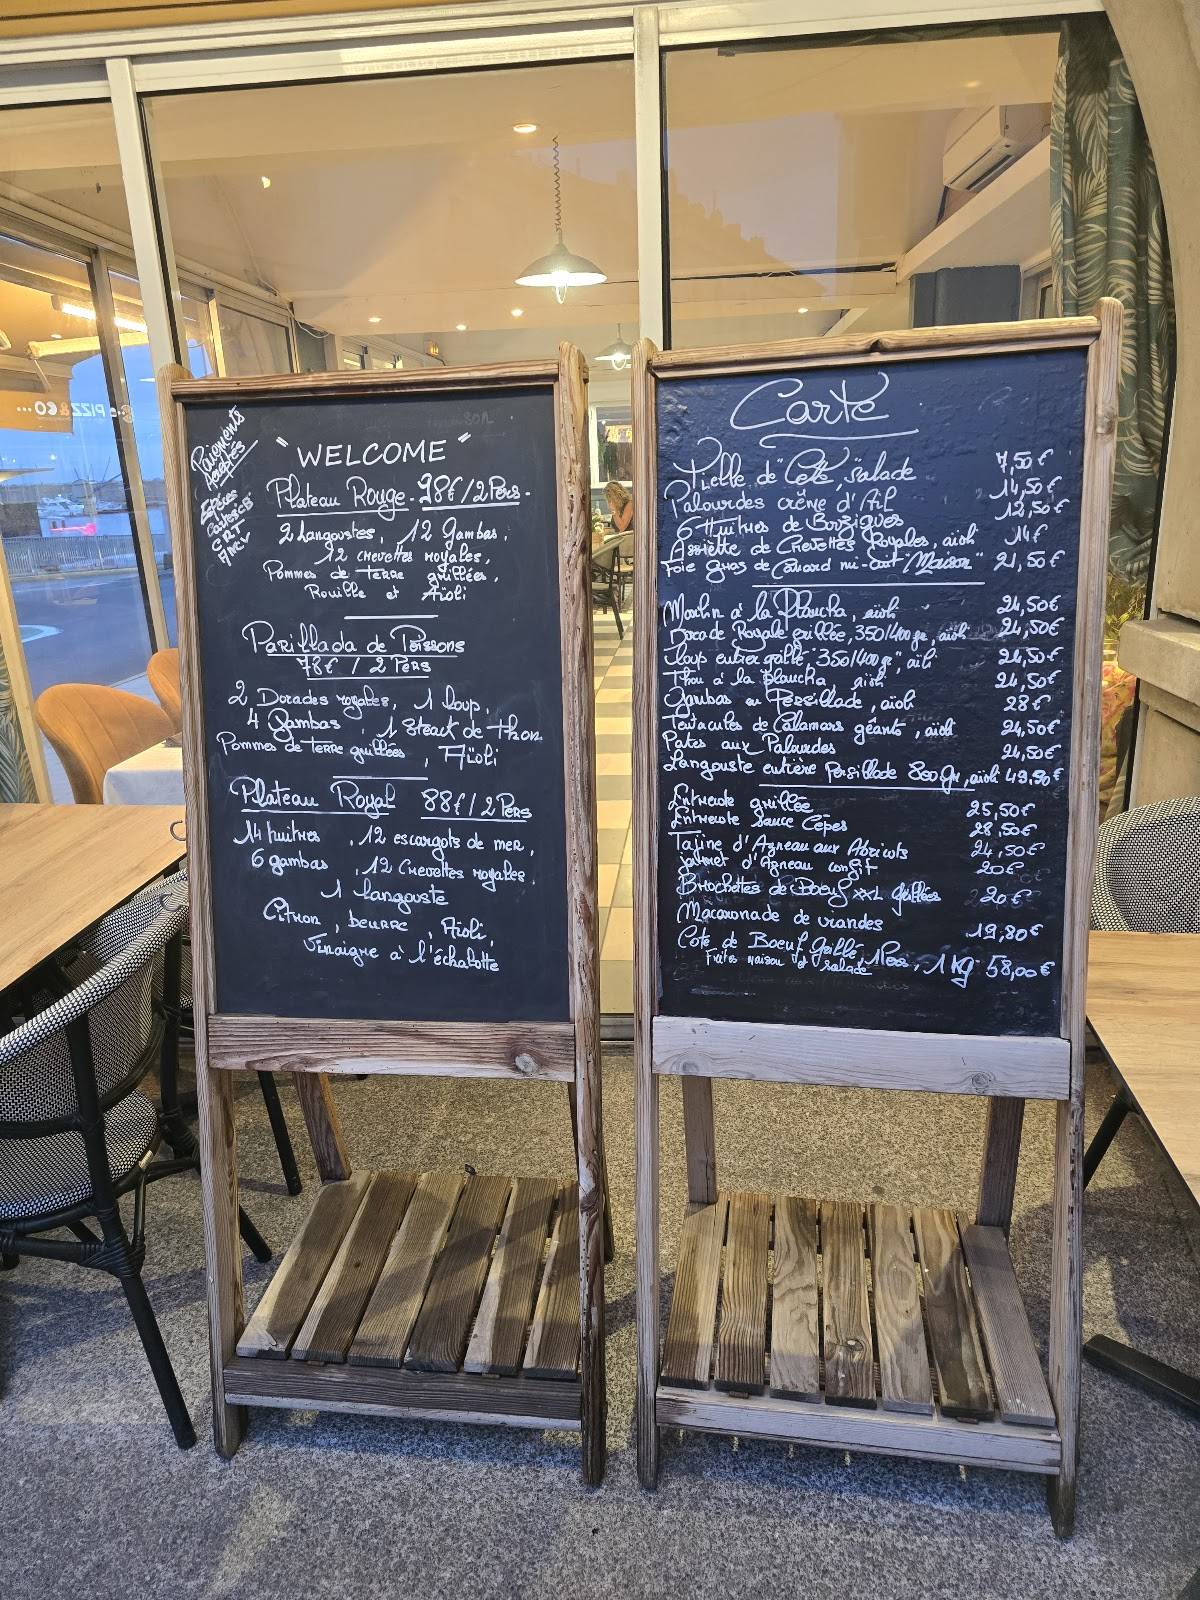 Paiements
Acceptés
Espèces
Cartes CB
C R T
ANCV
" WELCOME "
Plateau Rouge - 98€ / 2 Pers -
2 Langoustes, 12 Gambas,
12 crevettes royales,
Pommes de terre grillées,
Rouille et Aïoli
Parillada de Poissons
78€ / 2 Pers
2 Dorades royales, 1 loup,
4 Gambas, 1 Steack de thon
Pommes de terre grillées, Aïoli
Plateau Royal 88€ / 2 Pers
14 huitres, 12 escargots de mer,
6 gambas, 12 crevettes royales,
1 langouste
Citron, beurre, Aïoli,
Vinaigre à l'échalotte
Carte
Tielle de "Cette", salade 7,50€
Palourdes crème d'Ail 14,50€
6 Huitres de Bouzigues 12,50€
Assiette de Crevettes Royales, aïoli 14€
Foie gras de Canard mi-cuit "Maison" 21,50€
à la Plancha, aïoli 24,50€
Royale grillée, 350/400gr, aïoli 24,50€
Loup entier grillé, "350/400gr", aïoli 24,50€
Thon à la Plancha aïoli 24,50€
Gambas en Persillade, aïoli 28€
Tentacules de Calamars géants, aïoli 24,50€
Pates aux Palourdes 24,50€
Langouste entière Persillade 800Gr, aïoli 49,90€
Entrecote grillée 25,50€
Entrecote sauce Cèpes 28,50€
Tajine d'Agneau aux Abricots 24,50€
jarret d'Agneau confit 20€
Brochettes de Boeuf XXL Grillées 20€
Macaronade de viandes 19,80€
Cote de Boeuf Grillé, 1Pers, 1 Kg 58,00€
Frites maison et salade
PIZZ & CO...